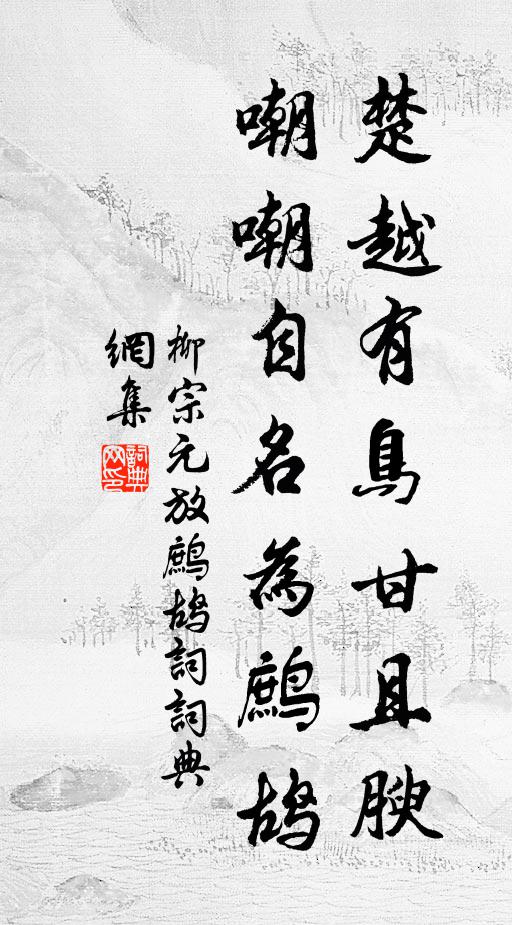 楚越有鳥甘且腴
嘲嘲自名為鷓鴣
柳宗元放鷓鴣詞詞典
網集
詞典
网印